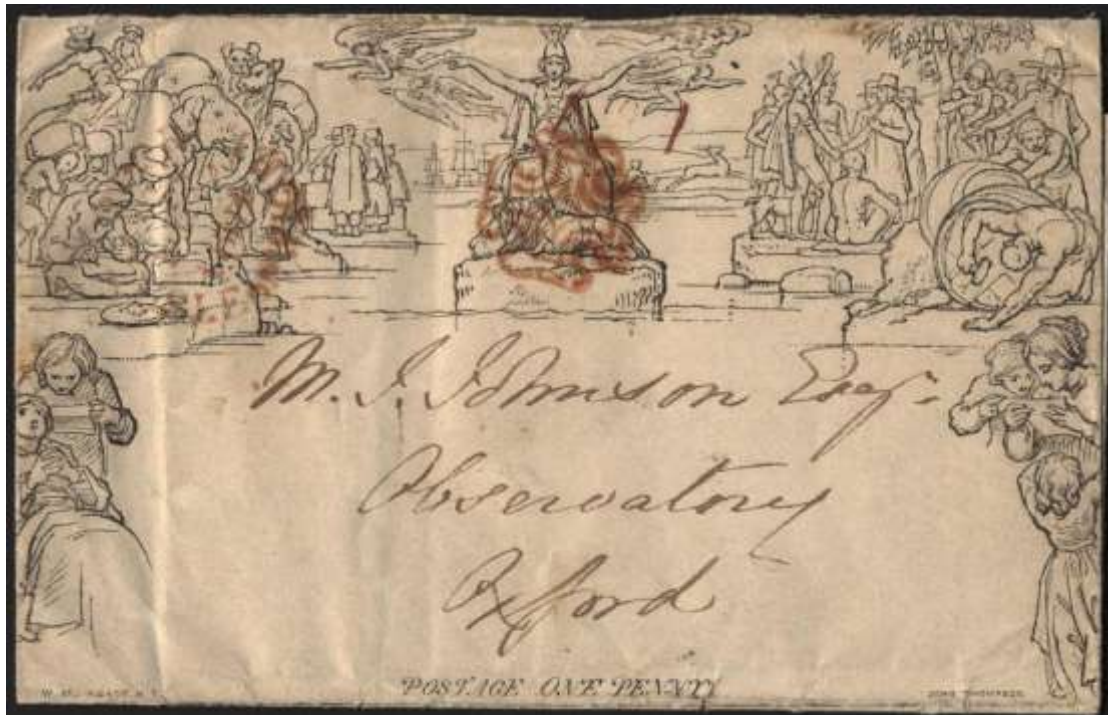 M. J. Johnson Esqr.
Observatory
Oxford
POSTAGE ONE PENNY
JOHN THOMPSON